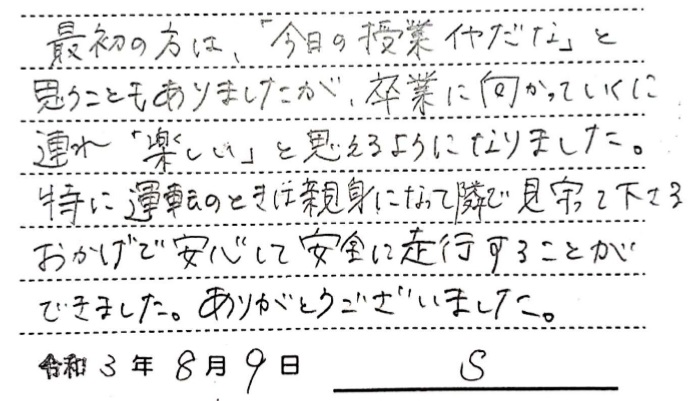 最初の方は、「今日の授業イヤだな」と
思うこともありましたが、卒業に向かっていくに
連れ「楽しい」と思えるようになりました。
特に運転のときは親身になって隣で見守って下さる
おかげで安心して安全に走行することが
できました。ありがとうございました。
令和3年8月9日 S